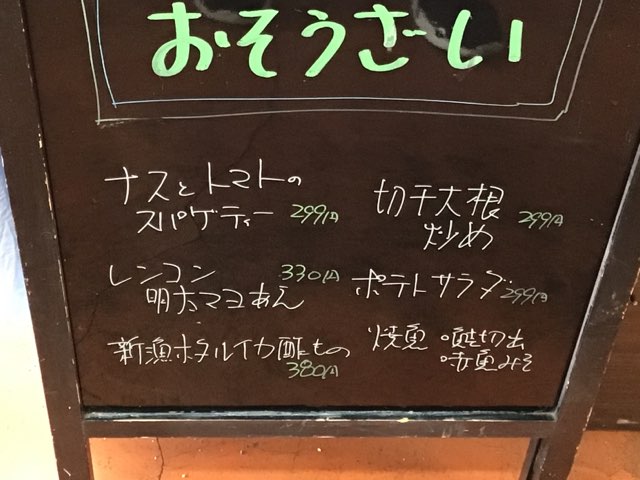 おそうざい
ナスとトマトの
スパゲティー 299円
レンコン 330円
明太マヨあえ
新漁ホタルイカ酢もの
380円
切干大根
炒め 299円
ポテトサラダ 299円
焼魚 ・鮭切出
・赤魚みそ